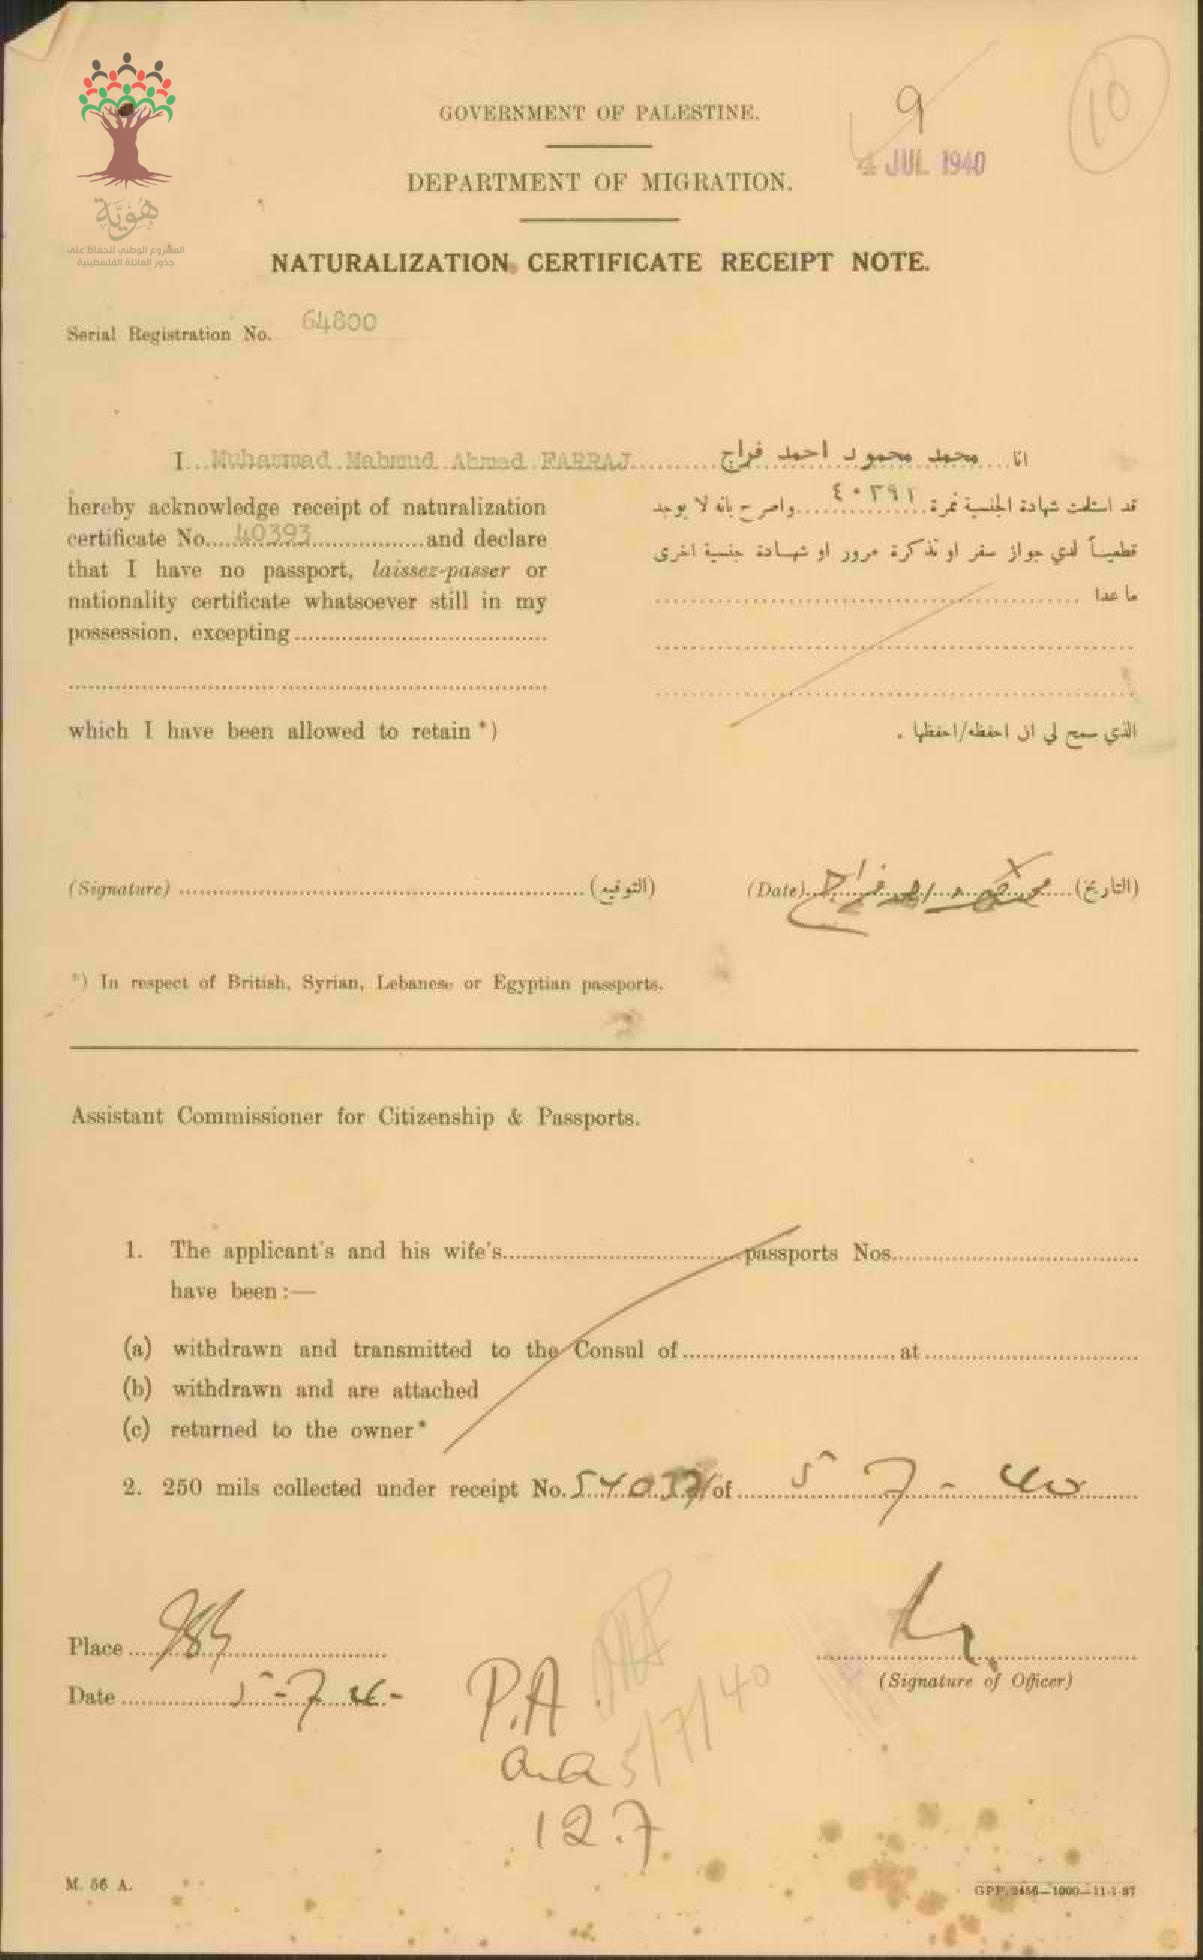 هُوِيَّة
المشروع الوطني للحفاظ على
جذور العائلة الفلسطينية
10
9
4 JUL 1940
GOVERNMENT OF PALESTINE.
DEPARTMENT OF MIGRATION.
NATURALIZATION CERTIFICATE RECEIPT NOTE.
Serial Registration No. 64800
I Muhammad Mahmud Ahmad FARRAJ
hereby acknowledge receipt of naturalization
certificate No. 40393 and declare
that I have no passport, laissez-passer or
nationality certificate whatsoever still in my
possession, excepting
which I have been allowed to retain *)
انا محمد محمود احمد فراج
قد استلمت شهادة الجنسية نمرة ٤٠٣٩٢ واصرح بانه لا يوجد
قطعياً لدي جواز سفر او تذكرة مرور او شهادة جنسية اخرى
ما عدا
الذي سمح لي ان احفظه/احفظها .
(Signature) (التوقيع) (Date) (التاريخ)
*) In respect of British, Syrian, Lebanese or Egyptian passports.
Assistant Commissioner for Citizenship & Passports.
1. The applicant's and his wife's passports Nos.
have been :—
(a) withdrawn and transmitted to the Consul of at
(b) withdrawn and are attached
(c) returned to the owner*
2. 250 mils collected under receipt No. of 5 7 - 40
Place
(Signature of Officer)
Date 5-7
P.A
5/7/40
12.7
M. 56 A.
GPP. 2456—1000—11-1-37